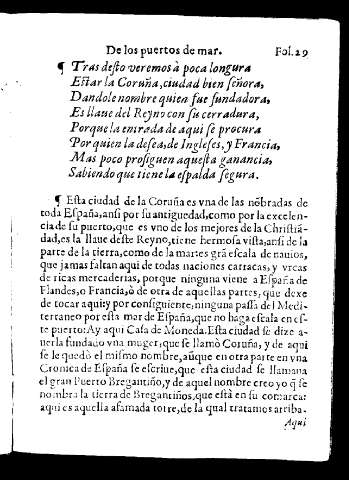 De los puertos de mar. Fol.29
¶ Tras desto veremos à poca longura
Estar la Coruña, ciudad bien señora,
Dandole nombre quien fue fundadora,
Es llaue del Reyno con su cerradura,
Porque la entrada de aqui se procura
Por quien la desea, de Ingleses, y Francia,
Mas poco prosiguen aquesta ganancia,
Sabiendo que tiene la espalda segura.
¶ Esta ciudad de la Coruña es vna de las nõbradas de
toda España, ansi por su antiguedad, como por la excelen-
cia de su puerto, que es vno de los mejores de la Christiã-
dad, es la llaue deste Reyno, tiene hermosa vista, ansi de la
parte de la tierra, como de la martes grã escala de nauios,
que jamas faltan aqui de todas naciones carracas, y vrcas
de ricas mercaderias, porque ninguna viene a España de
Flandes, o Francia, ò de otra de aquellas partes, que dexe
de tocar aqui: y por consiguiente, ninguna passa del Medi-
terraneo por esta mar de España, que no haga escala en es-
te puerto: Ay aqui Casa de Moneda. Esta ciudad se dize a-
uerla fundado vna muger, que se llamò Coruña, y de aqui
se le quedò el mismo nombre, aũque en otra parte en vna
Cronica de España se escriue, que esta ciudad se llamaua
el gran Puerto Bregantiño, y de aquel nombre creo yo q̃ se
nombra la tierra de Bregantiños, que està en su comarca:
aqui es aquella afamada torre, de la qual tratamos arriba.
Aqui